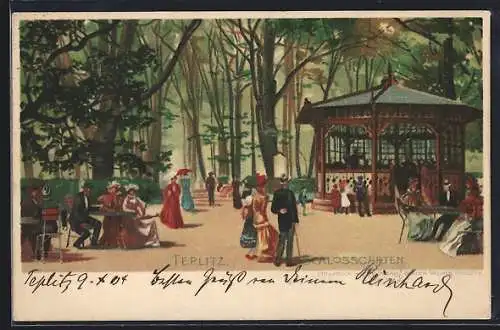 TEPLITZ. SCHLOSSGARTEN.
Teplitz 9. X 04 Besten Gruß von Deinem Reinhard